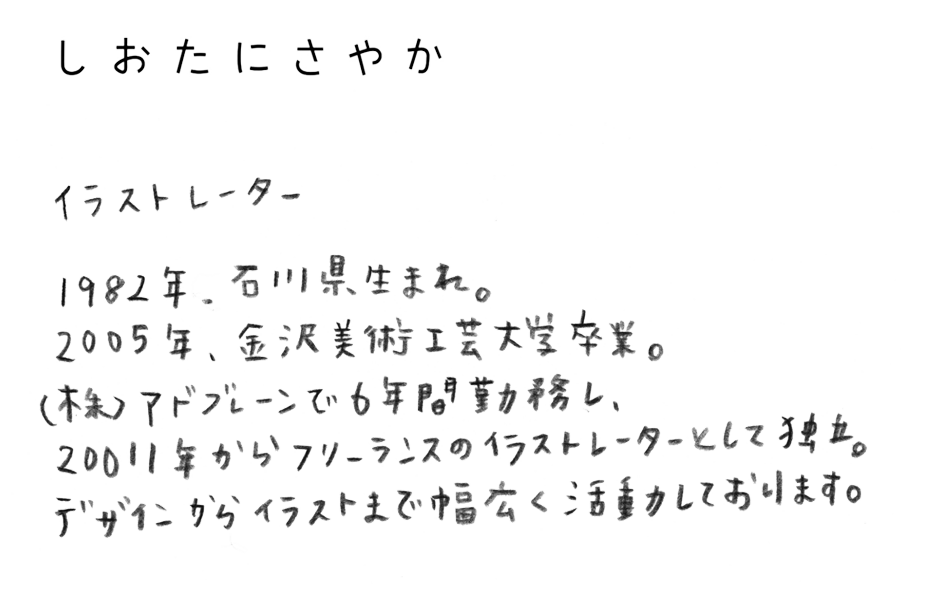 しおたにさやか
イラストレーター
1982年、石川県生まれ。
2005年、金沢美術工芸大学卒業。
(株)アドブレーンで6年間勤務し、
20011年からフリーランスのイラストレーターとして独立。
デザインからイラストまで幅広く活動しております。